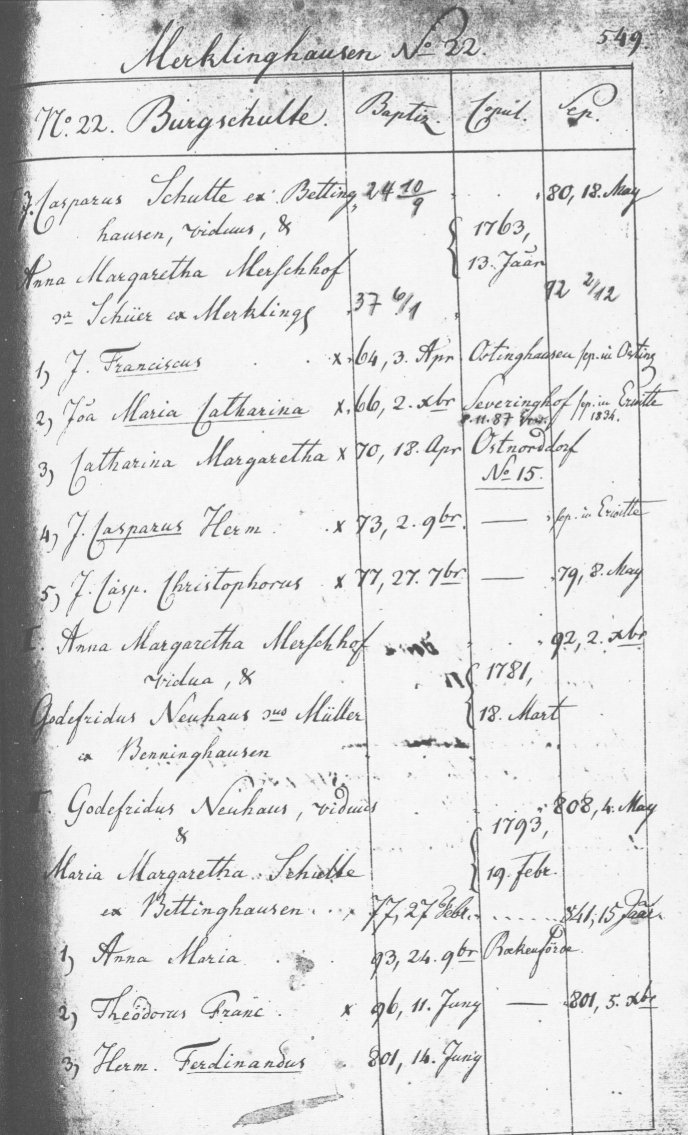 Merklinghausen No 22. 549.
No. 22. Burgschulte. Baptiz. Copul. Sep.
J. Casparus Schulte ex Betting, 24 10/9 80, 18. May
hausen, viduus, & 1763,
13. Jäar
Anna Margaretha Merschhof
Schüer ex Merkling 37 6/1 92 2/12
1, J. Franciscus x 64, 3. Apr Ostinghausen sep. in Osting
2, Jöa Maria Catharina x 66, 2. xbr Severinghof sep. in Erwitte
8.11.87 1834.
3, Catharina Margaretha x 70, 18. Apr Ostnorddorf
No 15.
4, J. Casparus Herm. x 73, 2. 9br. — sep. in Erwitte
5, J. Casp. Christophorus x 77, 27. 7br — 79, 8. May
I. Anna Margaretha Merschhof 92, 2. xbr
vidua, & 1781,
Godefridus Neuhaus Müller 18. Mart
ex Benninghausen
Godefridus Neuhaus, viduus 808, 4. May
& 1793,
Maria Margaretha Schulte 19. febr.
ex Bettinghausen 77, 27 Febr. 841, 15 Jäar
1, Anna Maria 93, 24. 9br Bökenförde
2, Theodorus Franc. x 96, 11. Juny — 801, 5. xbr
3, Herm. Ferdinandus 801, 14. Juny